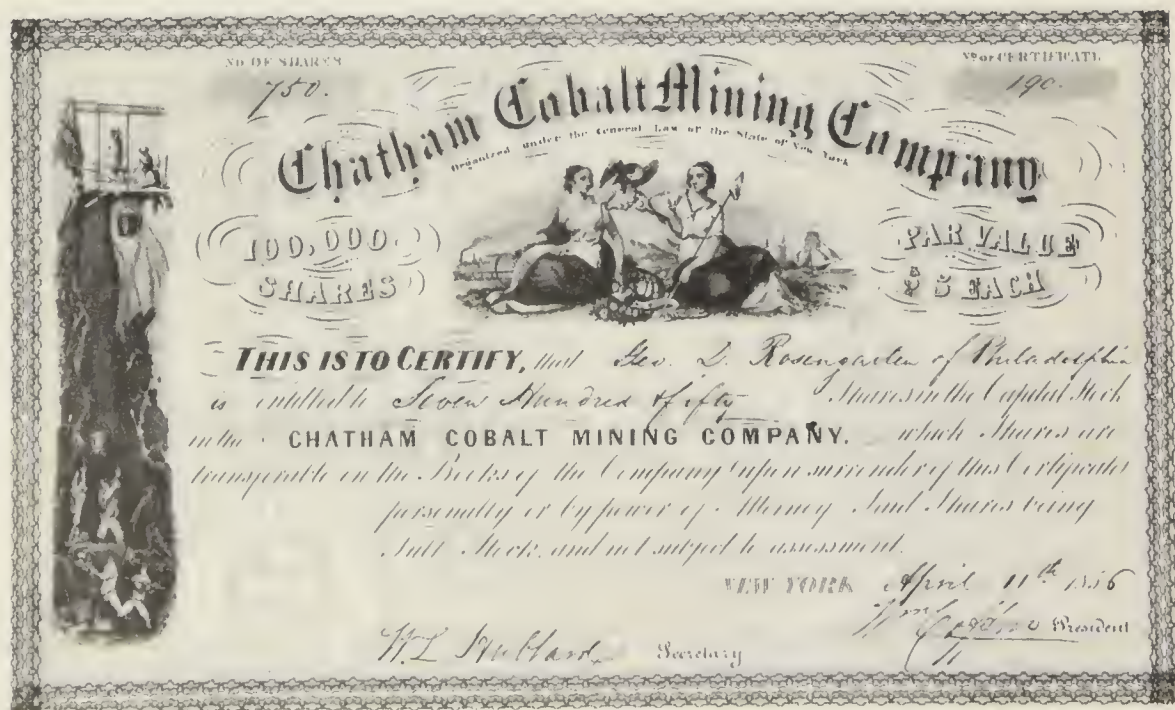 NO OF SHARES
750.
No OF CERTIFICATE
190.
Chatham Cobalt Mining Company
Organized under the General Law of the State of New York
100,000 SHARES
PAR VALUE $5 EACH
THIS IS TO CERTIFY, that Geo. D. Rosengarten of Philadelphia
is entitled to Seven Hundred & fifty Shares in the Capital Stock
in the CHATHAM COBALT MINING COMPANY. which Shares are
transferable on the Books of the Company upon surrender of this Certificate
personally or by power of Attorney Said Shares being
full Stock, and not subject to assessment.
NEW YORK April 11th 1856
President
W. L. Hubbard Secretary